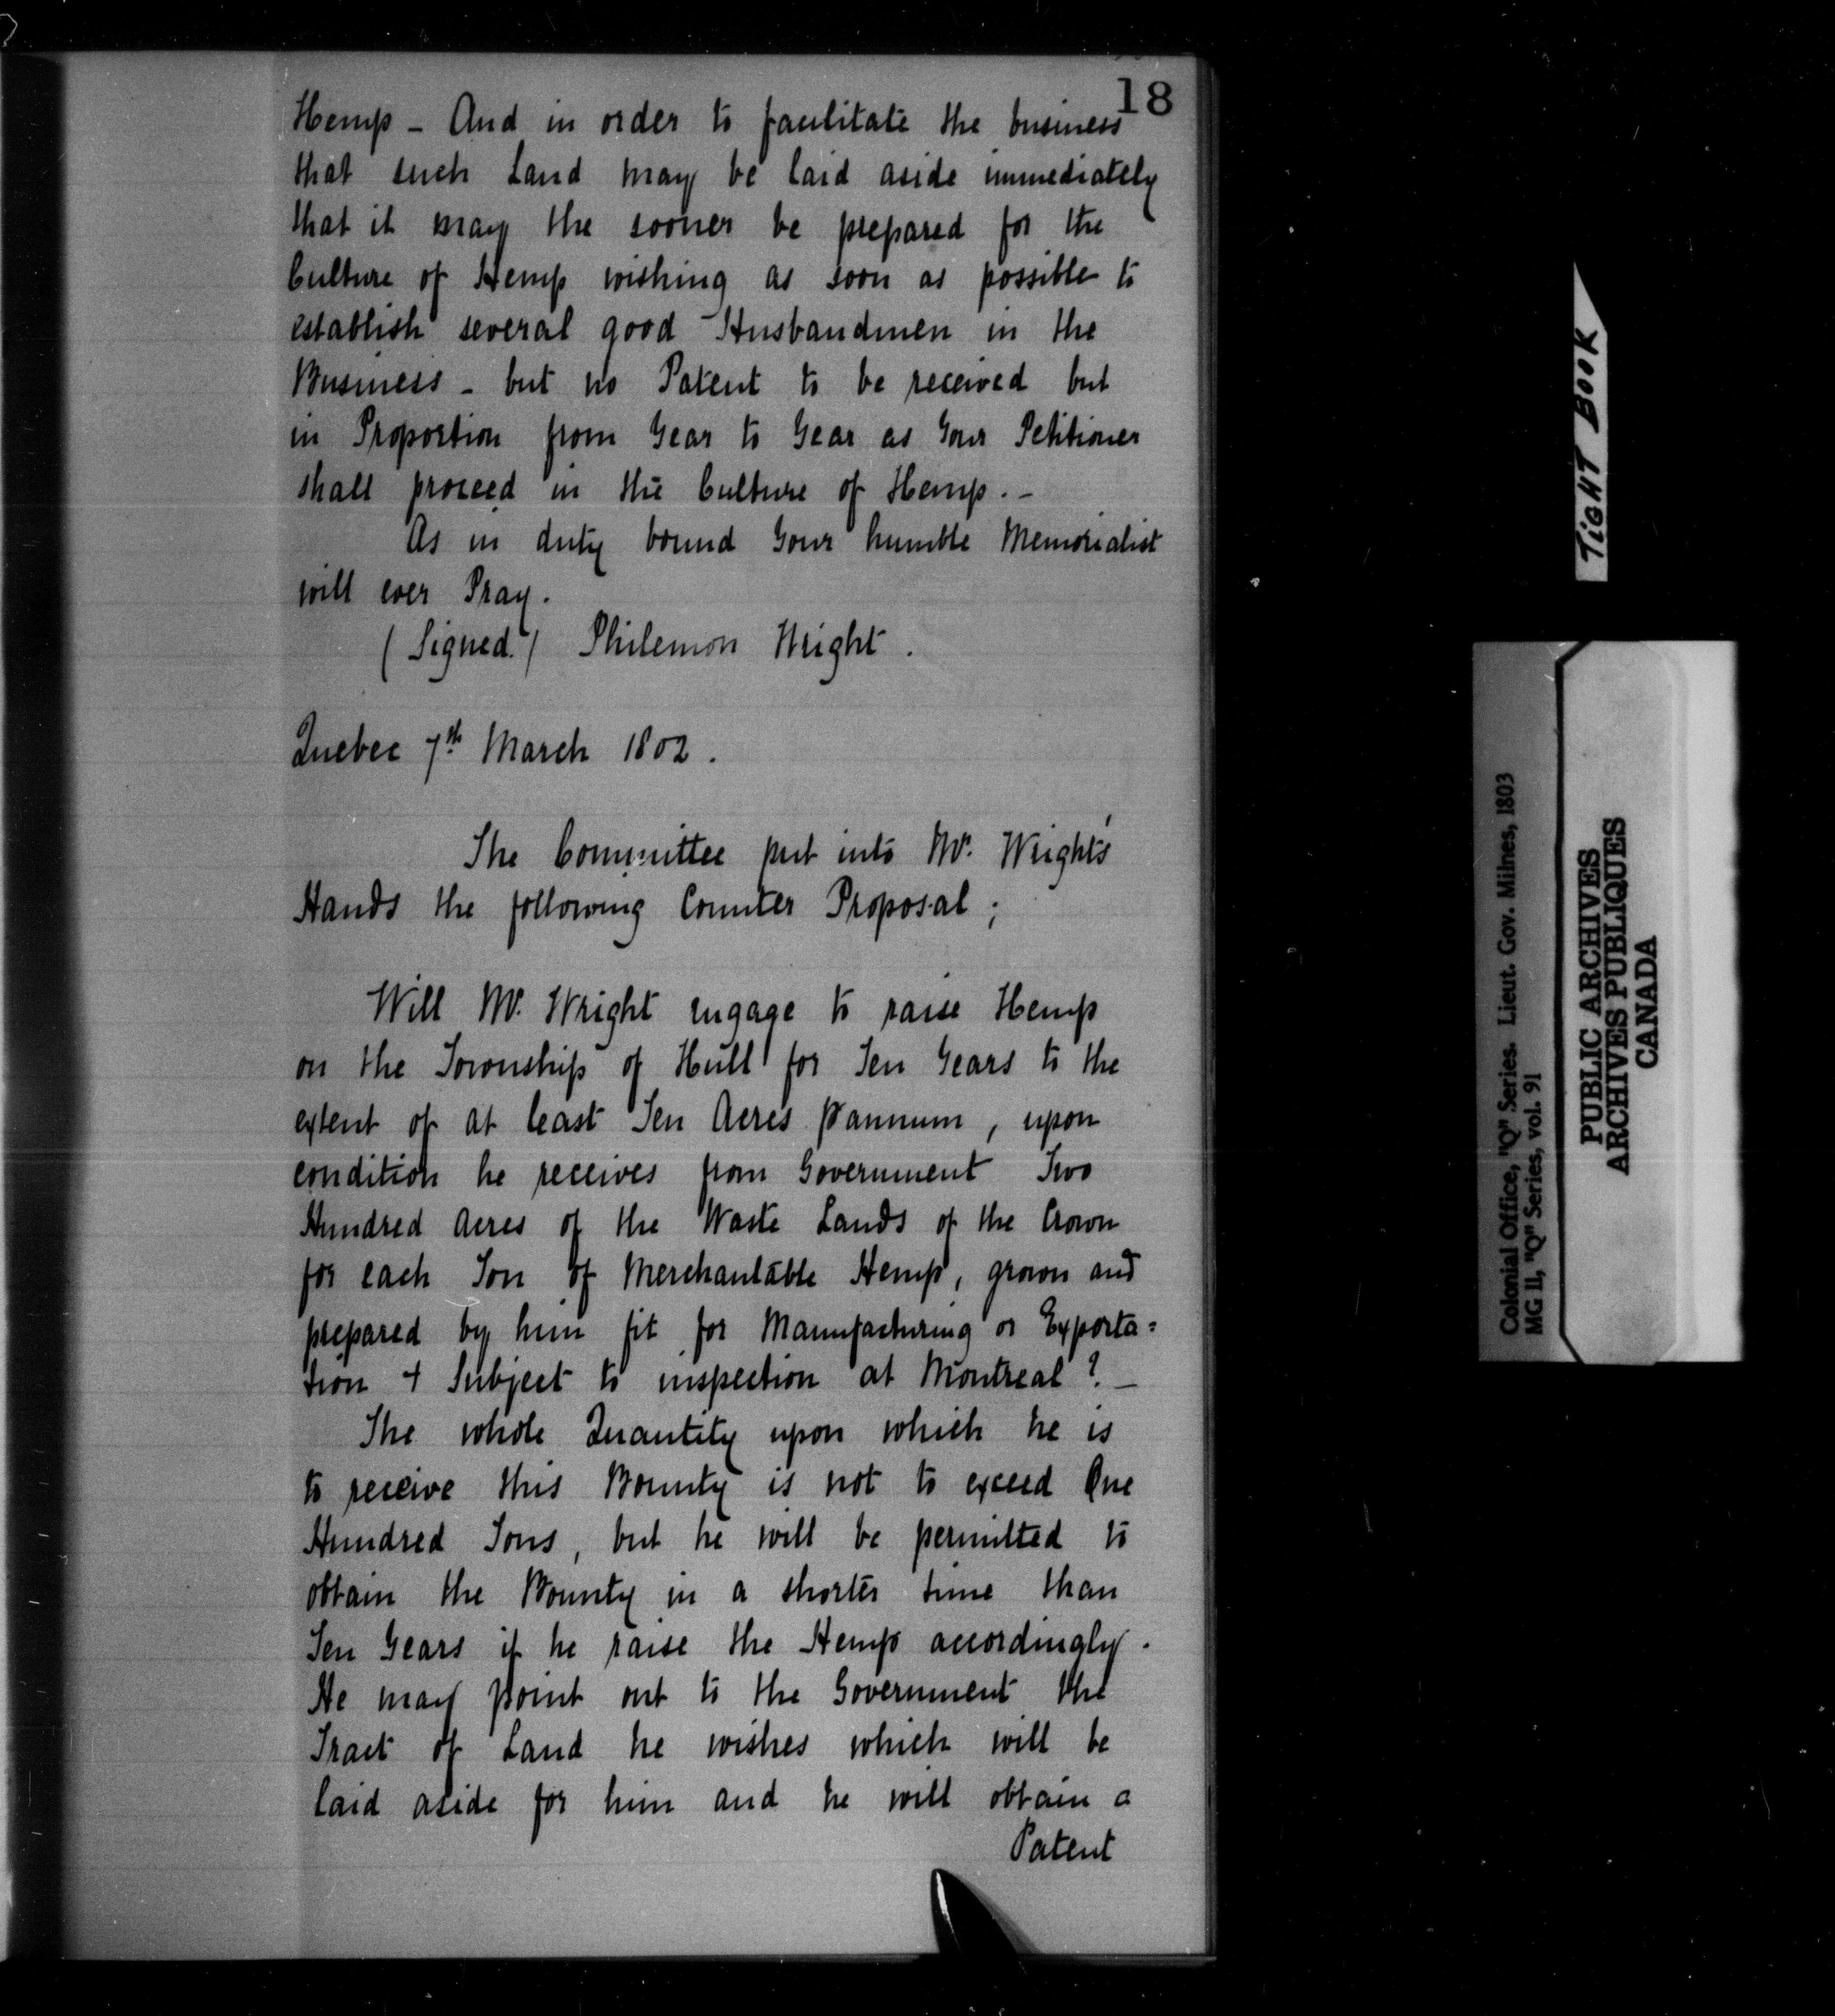 18
Hemp - And in order to facilitate the business
that such Land may be laid aside immediately
that it may the sooner be prepared for the
Culture of Hemp wishing as soon as possible to
establish several good Husbandmen in the
Business - but no Patent to be received but
in Proportion from Year to Year as Your Petitioner
shall proceed in the Culture of Hemp. -
As in duty bound Your humble Memorialist
will ever Pray.
(Signed.) Philemon Wright.
Quebec 7th March 1802.
The Committee put into Mr. Wright's
Hands the following Counter Proposal;
Will Mr. Wright engage to raise Hemp
on the Township of Hull for Ten Years to the
extent of at least Ten Acres p annum, upon
condition he receives from Government Two
Hundred Acres of the Waste Lands of the Crown
for each Ton of Merchantable Hemp, grown and
prepared by him fit for Manufacturing or Exporta=
tion & Subject to inspection at Montreal? -
The whole Quantity upon which he is
to receive this Bounty is not to exceed One
Hundred Tons, but he will be permitted to
obtain the Bounty in a shorter time than
Ten Years if he raise the Hemp accordingly.
He may point out to the Government the
Tract of Land he wishes which will be
laid aside for him and he will obtain a
Patent
TIGHT BOOK
Colonial Office, "Q" Series. Lieut. Gov. Milnes, 1803
MG 11, "Q" Series, vol. 91
PUBLIC ARCHIVES
ARCHIVES PUBLIQUES
CANADA